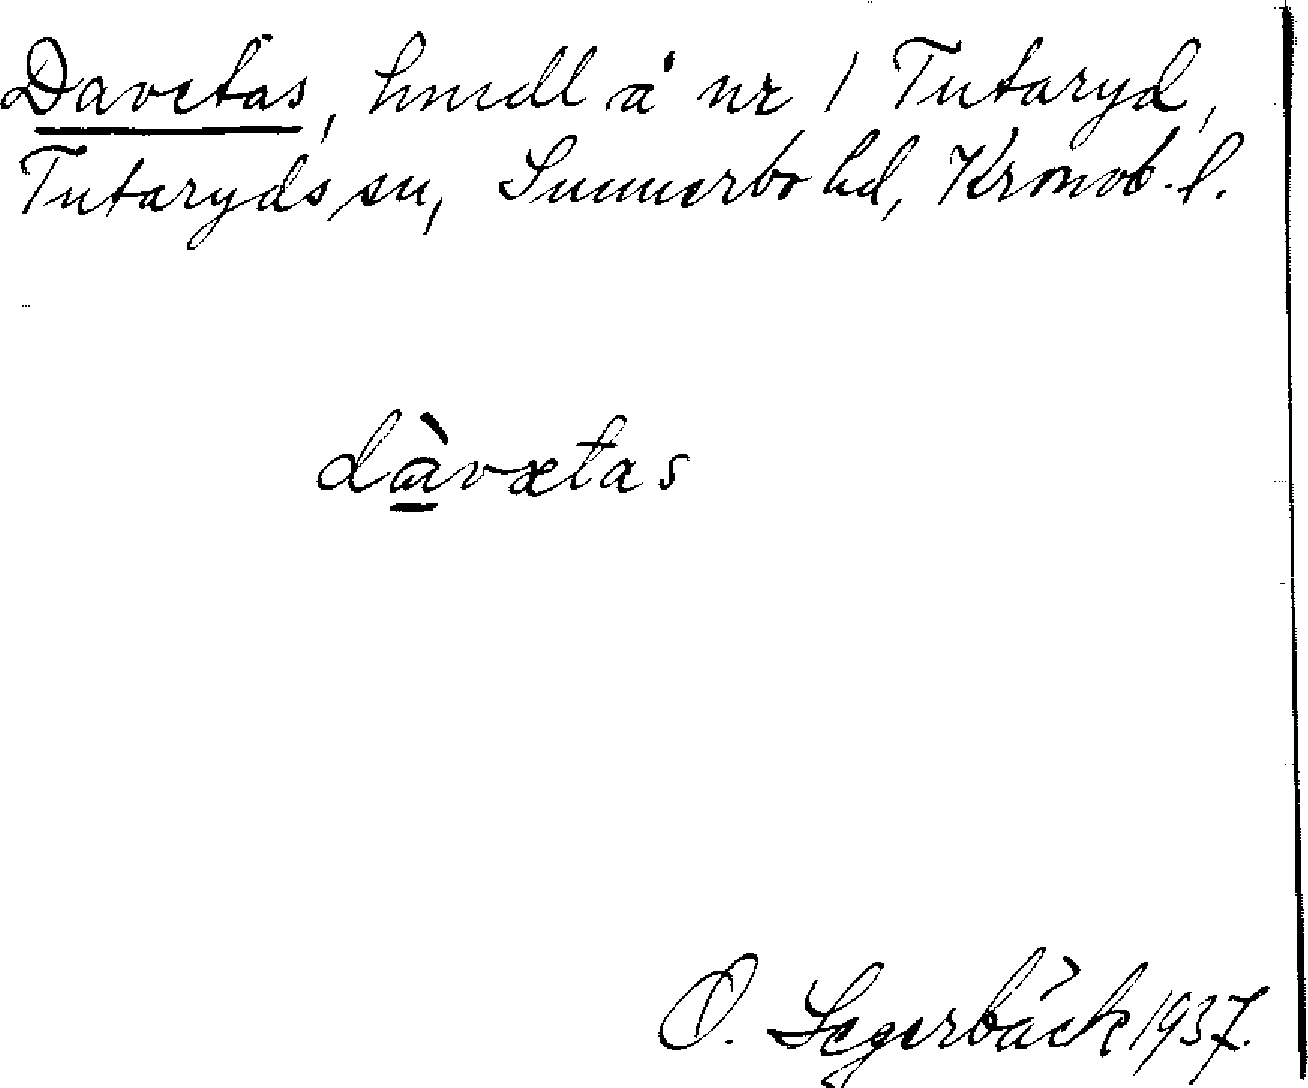 Davetas, hmdl å nr 1 Tutaryd,
Tutaryds sn, Sunnerbo hd, Kronob. l.
dàvætas
O. Segerbäck 1937.